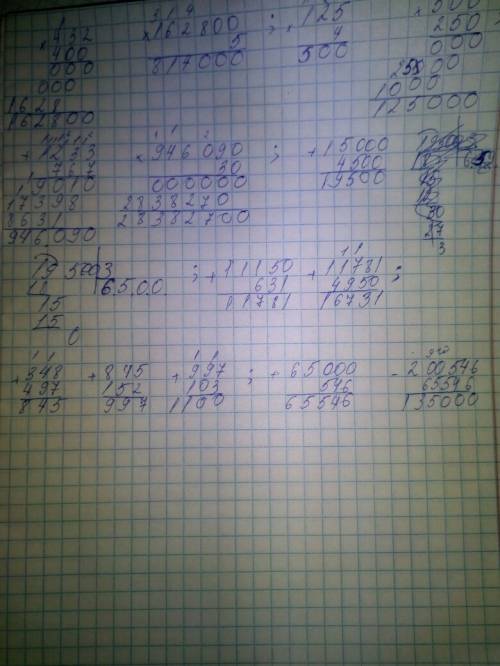 432 162800 ; 125 500
× 400 × 5 × 4 250
000 817000 500 000
000 2500
1628 1000
162800 125000
1233 × 946090 ; + 15000
30 4500
19010 000000 19500
17398 2838270
8631 28382700
946090
195003 ; + 11150 + 11781 ;
6500 631 4950
15 11781 16731
15
0
+ 348 + 845 + 997 ; + 65000 - 200546
497 152 103 546 65546
845 997 1100 65546 135000